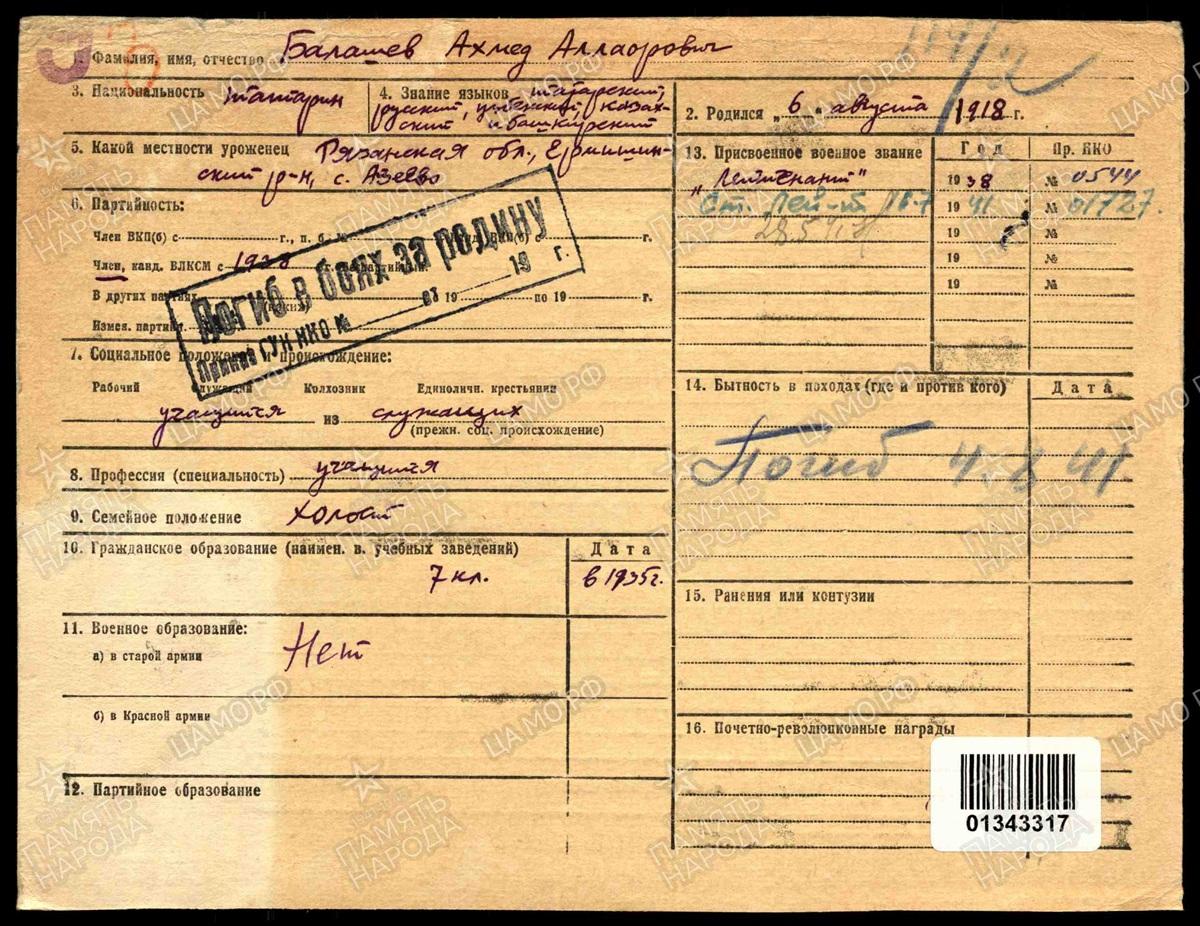 1. Фамилия, имя, отчество Балашев Ахмед Аллаорович
3. Национальность татарин
4. Знание языков татарский,
русский, узбекский, казах-
ский и башкирский
2. Родился „ 6 „ августа 1918 г.
5. Какой местности уроженец Рязанская обл., Ермишин-
ский р-н, с. Азеево
6. Партийность:
Член ВКП(б) с г., п. б. № ВКП(б) с г.
Член, канд. ВЛКСМ с 1938
В других партиях от 19 по 19 г.
Измен. партии
Погиб в боях за родину
Приказ ГУК НКО № от 19 г.
7. Социальное положение и происхождение:
Рабочий Служащий Колхозник Единоличн. крестьянин
учащийся из служащих
(прежн. соц. происхождение)
8. Профессия (специальность) учащийся
9. Семейное положение холост
10. Гражданское образование (наимен. в. учебных заведений) Дата
7 кл. в 1935г.
11. Военное образование:
а) в старой армии Нет
б) в Красной армии
12. Партийное образование
13. Присвоенное военное звание Год Пр. НКО
„Лейтенант" 1938 № 0544
Ст. Лей-нт 16.7 1941 № 01727.
19 №
19 №
19 №
14. Бытность в походах (где и против кого) Дата
Погиб 4.8.41
15. Ранения или контузии
16. Почетно-революционные награды
01343317
ЦАМО.РФ
ПАМЯТЬ
НАРОДА